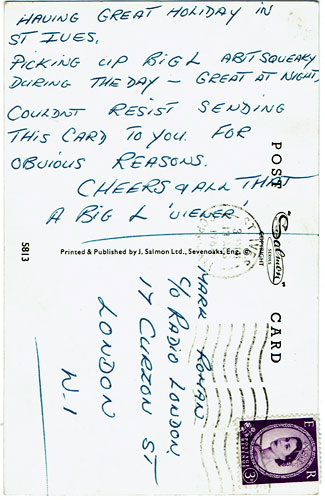 HAVING GREAT HOLIDAY IN
ST IVES.
PICKING UP BIG L ABIT SQUEAKY
DURING THE DAY — GREAT AT NIGHT,
COULDNT RESIST SENDING
THIS CARD TO YOU. FOR
OBVIOUS REASONS.
CHEERS & ALL THAT
A BIG L 'UENER'
Printed & Published by J. Salmon Ltd., Sevenoaks, Eng. ©
5813
POST CARD
"Salmon"
SERIES
COPYRIGHT
MARK ROMAN
C/O RADIO LONDON
17 CURZON ST
LONDON
W-1
E R
3D